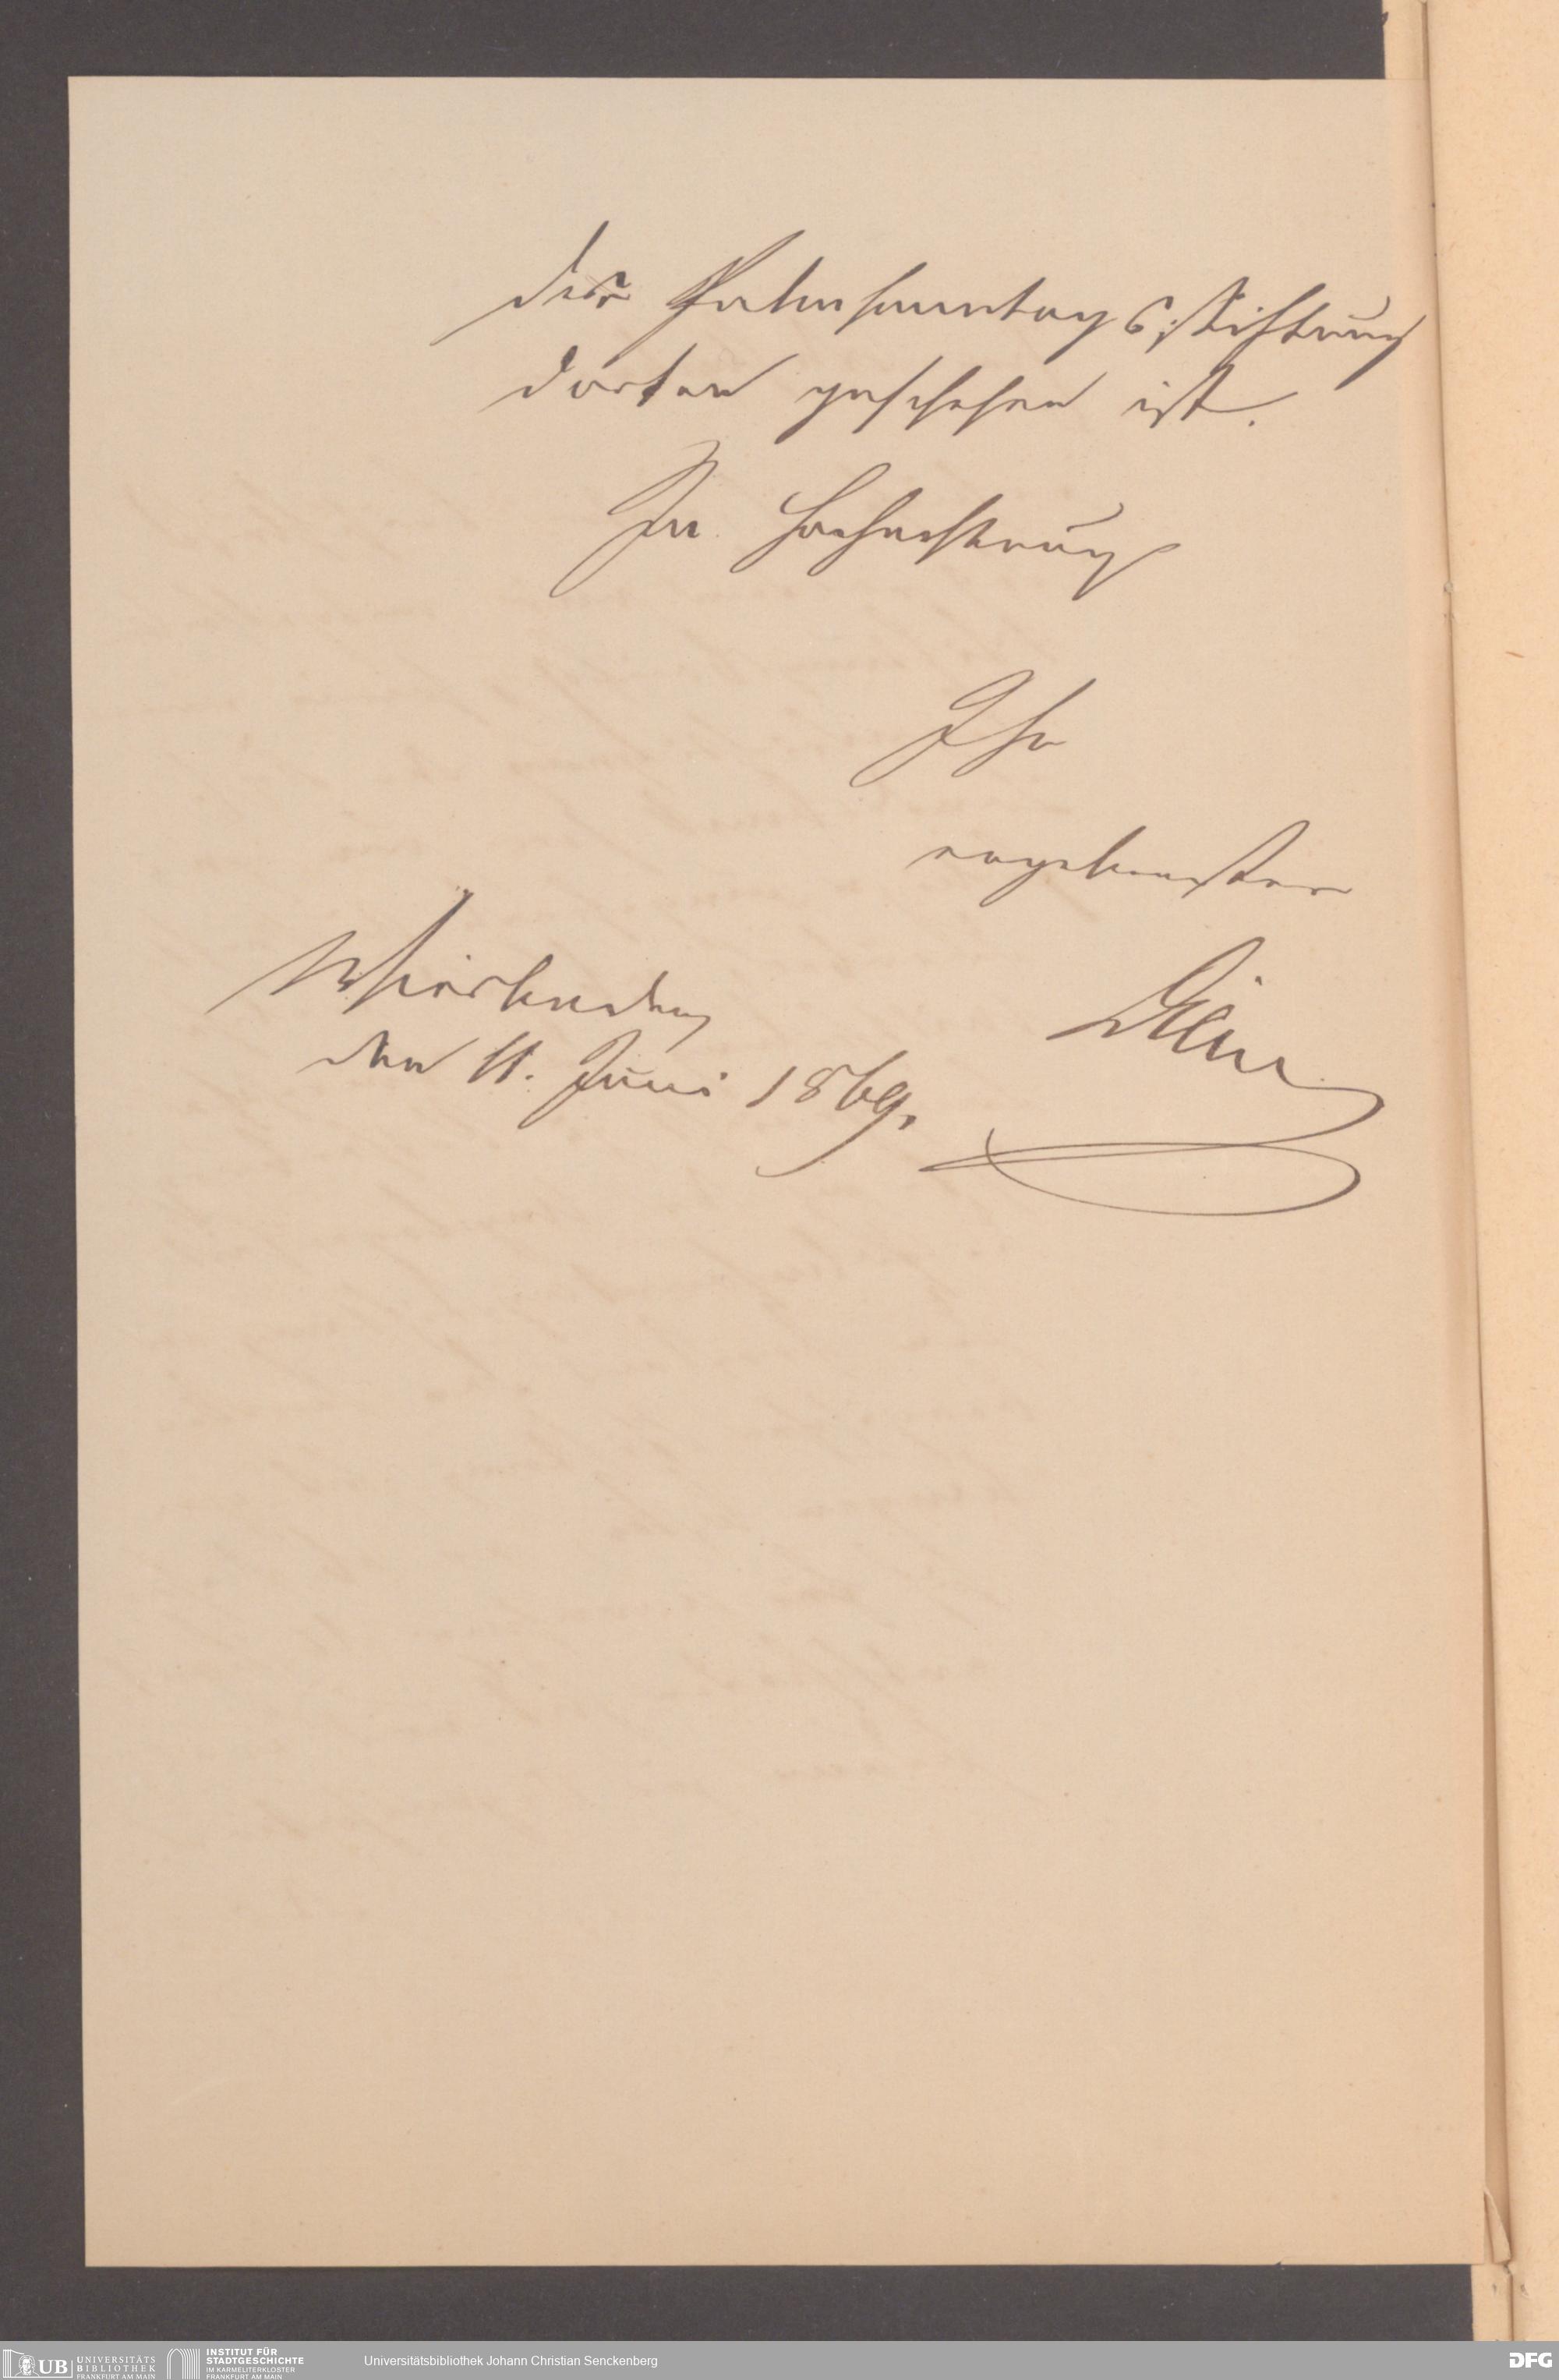 der Palmsonntagsstiftung
dorten geschehen ist.
In Hochachtung
Ihr
ergebenster
Wiesbaden
den 11. Juni 1869.
UB UNIVERSITÄTS BIBLIOTHEK FRANKFURT AM MAIN
INSTITUT FÜR STADTGESCHICHTE IM KARMELITERKLOSTER FRANKFURT AM MAIN
Universitätsbibliothek Johann Christian Senckenberg
DFG